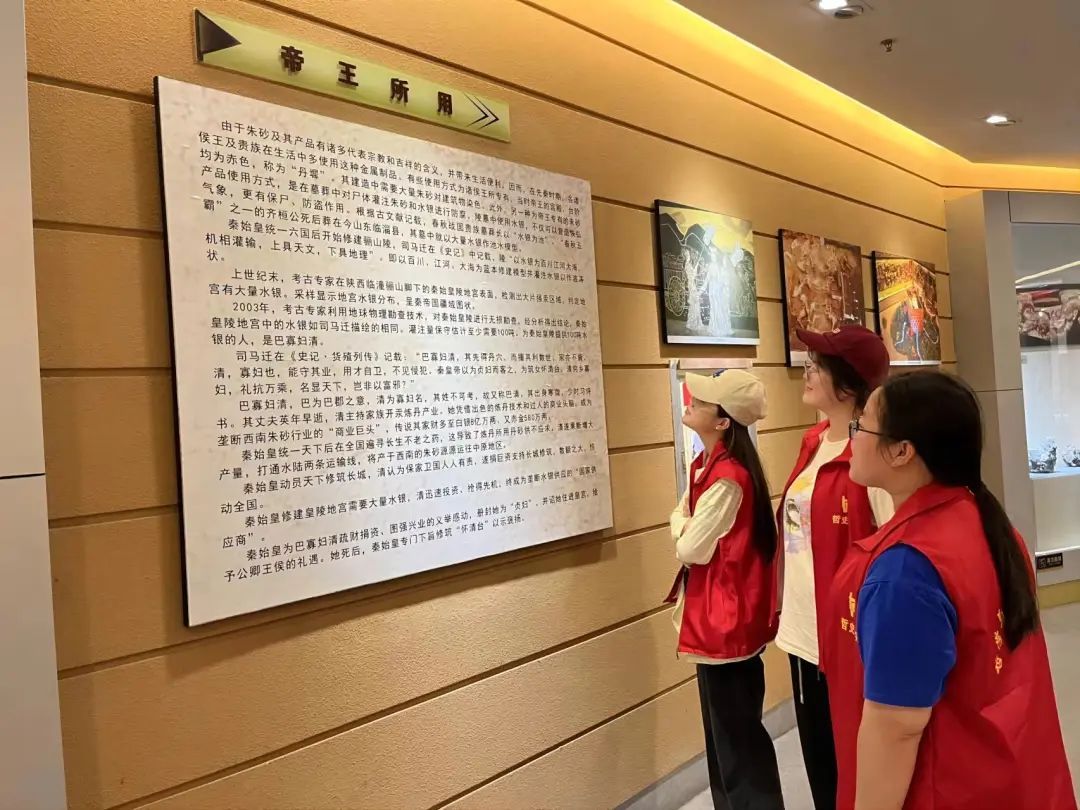 帝王所用
由于朱砂及其产品有诸多代表宗教和吉祥的含义，并带来生活便利，因而，在先秦时期，各诸
侯王及贵族在生活中多使用这种金属制品，有些使用方式为诸侯王所专有，当时帝王的宫殿、台阶
均为赤色，称为“丹墀”，其建造中需要大量朱砂对建筑物染色。此外，另一种为帝王专有的朱砂
产品使用方式，是在墓葬中对尸体灌注朱砂和水银进行防腐，陵墓中使用水银，不仅可以营造恢弘
气象，更有保尸、防盗作用。根据古文献记载，春秋战国贵族墓葬长以“水银为池”，“春秋五
霸”之一的齐桓公死后葬在今山东临淄县，其墓中就以大量水银作池水模型。
秦始皇统一六国后开始修建骊山陵，司马迁在《史记》中记载，陵“以水银为百川江河大海，
机相灌输，上具天文，下具地理”。即以百川、江河、大海为蓝本修建模型并灌注水银以作波涛
状。
上世纪末，考古专家在陕西临潼骊山脚下的秦始皇陵地宫表面，检测出大片椟汞区域，判定地
宫有大量水银。采样显示地宫水银分布，呈秦帝国疆域图状。
2003年，考古专家利用地球物理勘查技术，对秦始皇陵进行无损勘查。经分析得出结论，秦始
皇陵地宫中的水银如司马迁描绘的相同，灌注量保守估计至少需要100吨。为秦始皇陵提供100吨水
银的人，是巴寡妇清。
司马迁在《史记·货殖列传》记载：“巴寡妇清，其先得丹穴，而擅其利数世，家亦不訾。
清，寡妇也，能守其业，用才自卫，不见侵犯。秦皇帝以为贞妇而客之，为筑女怀清台。清穷乡寡
妇，礼抗万乘，名显天下，岂非以富邪？”
巴寡妇清，巴为巴郡之意，清为寡妇名，其姓不可考，故又称巴清，其出身寒微，少时习得
书。其丈夫英年早逝，清主持家族开汞炼丹产业，她凭借出色的炼丹技术和过人的商业头脑，成为
垄断西南朱砂行业的“商业巨头”，传说其家财多至白银8亿万两、又赤金580万两。
秦始皇统一天下后在全国遍寻长生不老之药，这导致了炼丹所用丹砂供不应求，清逐渐断增大
产量，打通水陆两条运输线，将产于西南的朱砂源源运往中原地区。
秦始皇动员天下修筑长城，清认为保家卫国人人有责，遂捐巨资支持长城修筑，数额之大，惊
动全国。
秦始皇修建皇陵地宫需要大量水银，清迅速投资、抢得先机、终成为垄断水银供应的“国家供
应商”。
秦始皇为巴寡妇清疏财捐资、图强兴业的义举感动，册封她为“贞妇”，并诏她住进皇宫，给
予公卿王侯的礼遇。她死后，秦始皇专门下旨修筑“怀清台”以示褒扬。